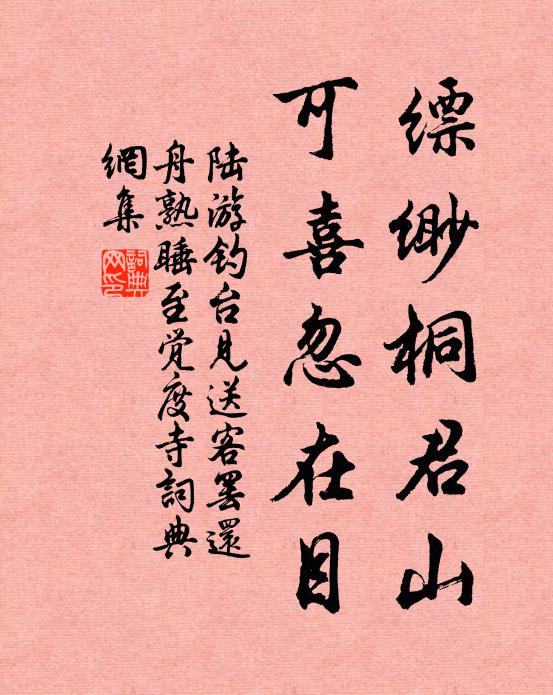 缥缈桐君山
可喜忽在目
陆游钓台见送客罢還
舟熟睡至觉度寺詞典
網集
詞典
网印